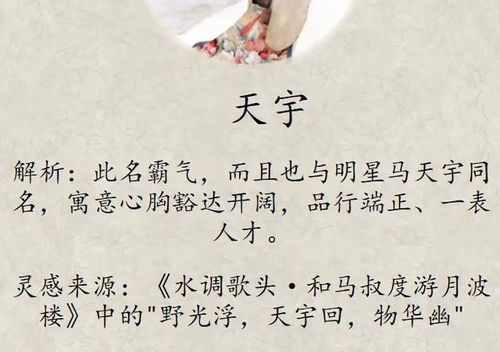 天宇
解析：此名霸气，而且也与明星马天宇同
名，寓意心胸豁达开阔，品行端正、一表
人才。
灵感来源：《水调歌头·和马叔度游月波
楼》中的"野光浮，天宇回，物华幽"